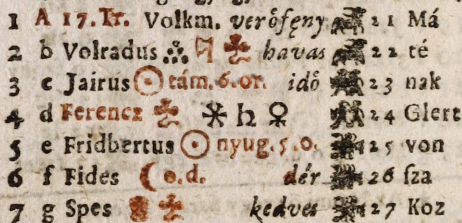 1 A 17. Tr. Volkm. verőfęny 21 Má
2 b Volradus havas 22 té
3 c Jairus ☉ tám. 6. or. idő 23 nak
4 d Ferencz ⚹ ♄ ♀ 24 Glert
5 e Fridbertus ☉ nyug. 5. o. 25 von
6 f Fides ☾ e. d. dér 26 ſza
7 g Spes kedves 27 Koz